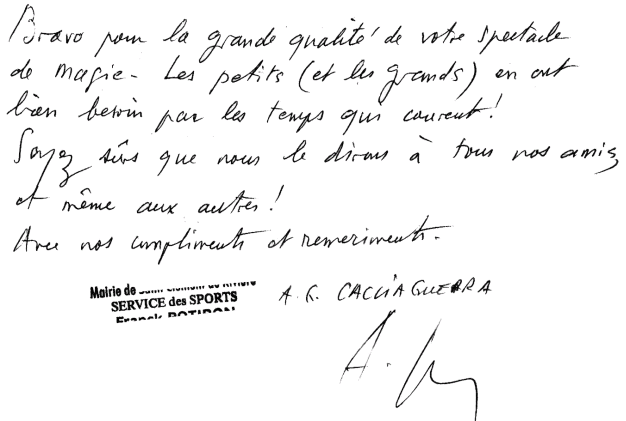 Bravo pour la grande qualité de votre spectacle
de magie - Les petits (et les grands) en ont
bien besoin par les temps qui courent !
Soyez sûrs que nous le dirons à tous nos amis,
et même aux autres !
Avec nos compliments et remerciments.
Mairie de Saint Clément de Rivière
SERVICE des SPORTS
Franck POTIRON
A. G. CACCIAGUERRA